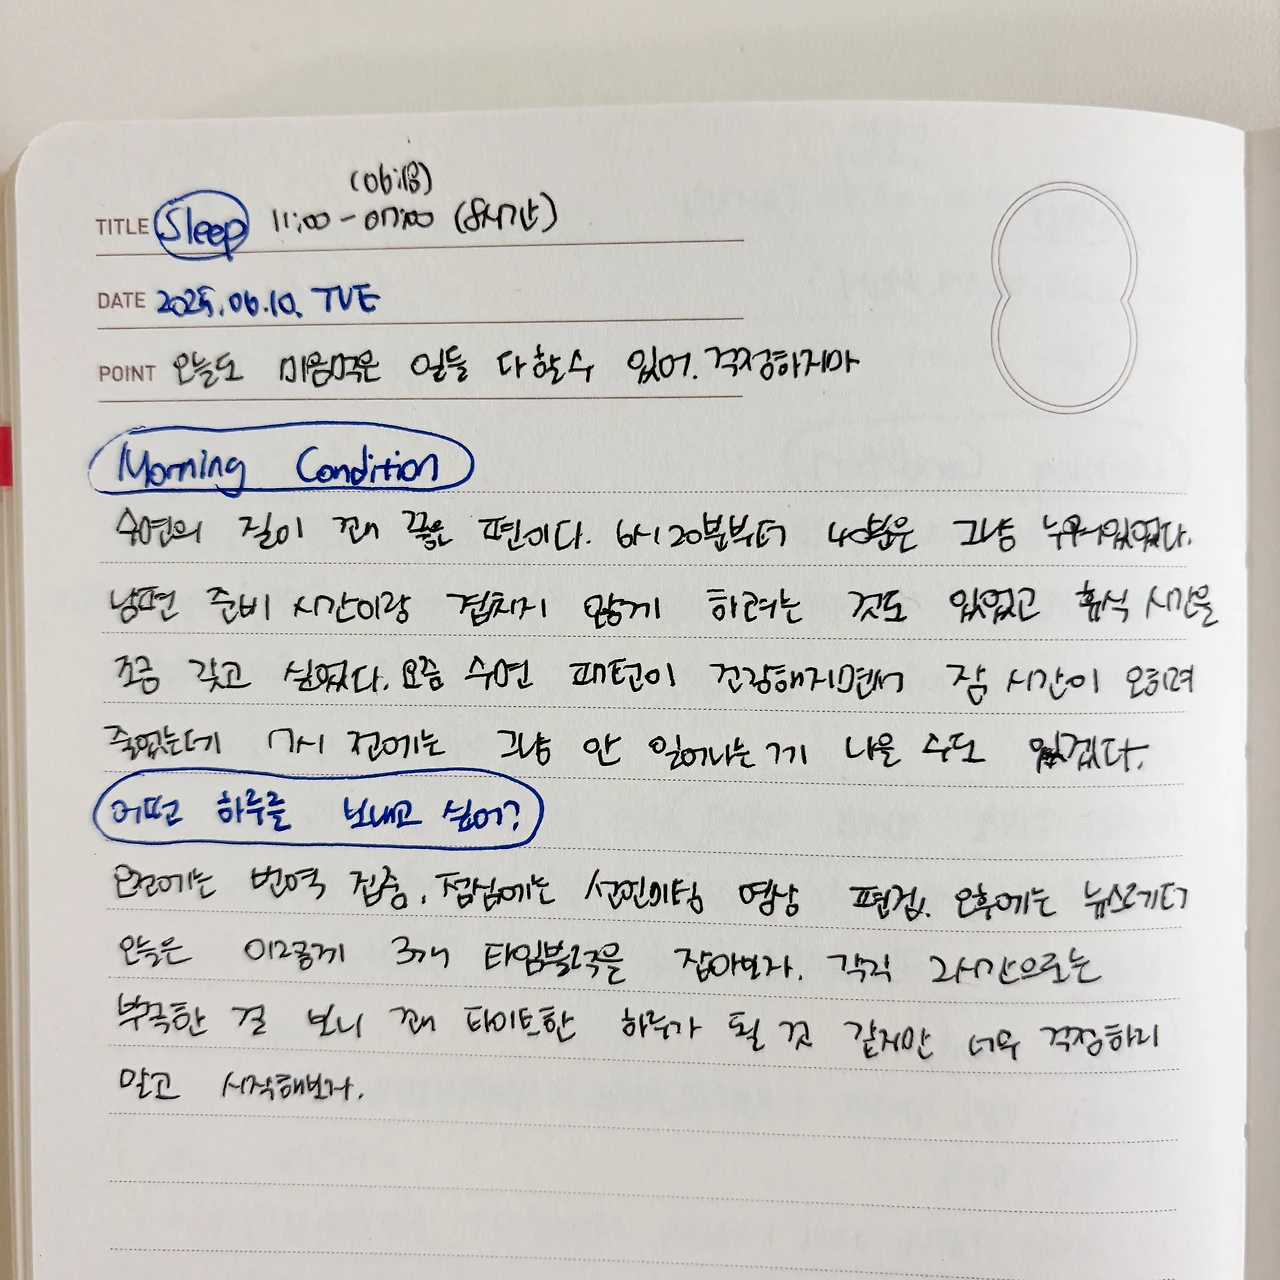 (06:18)
TITLE Sleep 11:00 - 07:00 (8시간)
DATE 2025.06.10. TUE
POINT 오늘도 마음먹은 일들 다 할 수 있어. 걱정하지마
Morning Condition
수면의 질이 꽤 좋은 편이다. 6시 20분부터 40분은 그냥 누워있었다.
남편 준비 시간이랑 겹치지 않게 하려는 것도 있었고 휴식 시간을
조금 갖고 싶었다. 요즘 수면 패턴이 건강해지면서 잠 시간이 오히려
줄었는데 7시 전에는 그냥 안 일어나는 게 나을 수도 있겠다.
어떤 하루를 보내고 싶어?
오전에는 번역 집중. 점심에는 영상 편집. 오후에는 뉴스레터
오늘은 이렇게 3개 타임블럭을 잡아보자. 각각 2시간으로는
부족한 걸 보니 꽤 타이트한 하루가 될 것 같지만 너무 걱정하지
말고 시작해보자.